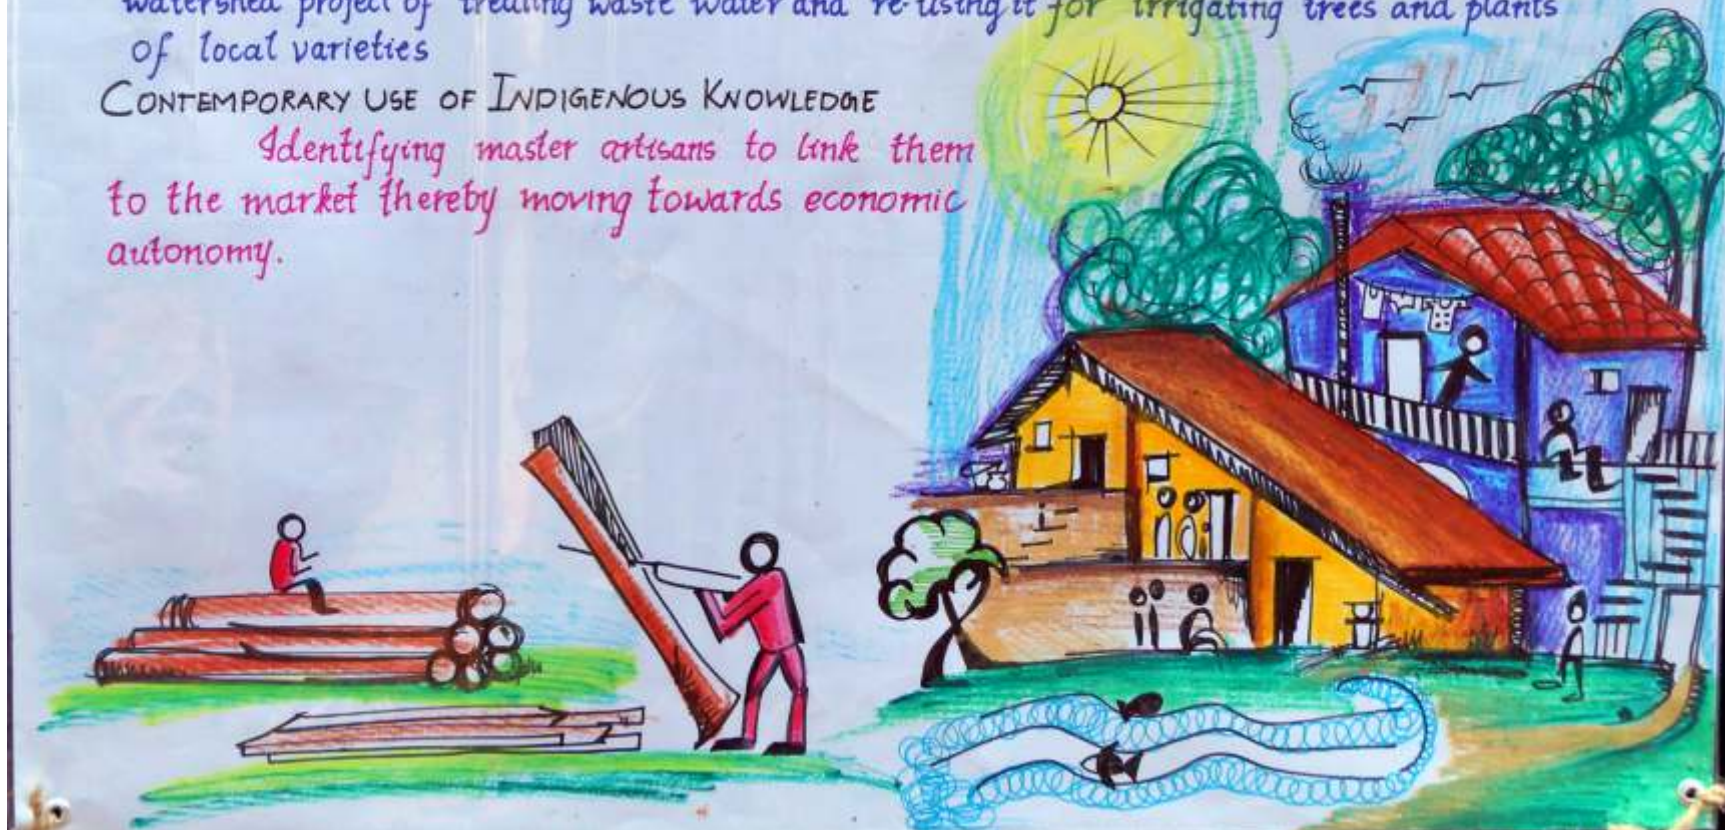 watershed project of treating waste water and re-using it for irrigating trees and plants
of local varieties
CONTEMPORARY USE OF INDIGENOUS KNOWLEDGE
Identifying master artisans to link them
to the market thereby moving towards economic
autonomy.